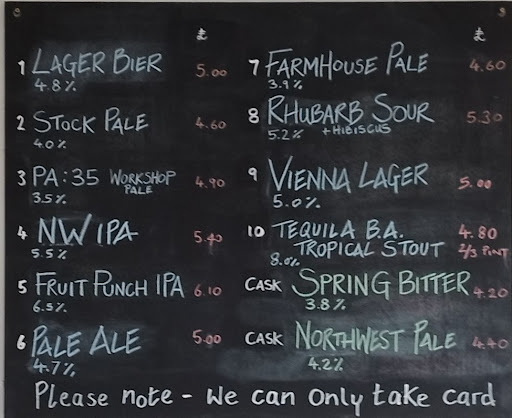 £
1 LAGER BIER 5.00
4.8%
2 STOCK PALE 4.60
4.0%
3 PA:35 WORKSHOP PALE 4.90
3.5%
4 NW IPA 5.40
5.5%
5 FRUIT PUNCH IPA 6.10
6.5%
6 PALE ALE 5.00
4.7%
£
7 FARMHOUSE PALE 4.60
3.9%
8 RHUBARB SOUR 5.30
5.2% + HIBISCUS
9 VIENNA LAGER 5.00
5.0%
10 TEQUILA B.A. 4.80
TROPICAL STOUT 2/3 PINT
8.0%
CASK SPRING BITTER 4.20
3.8%
CASK NORTHWEST PALE 4.40
4.2%
Please note - We can only take card